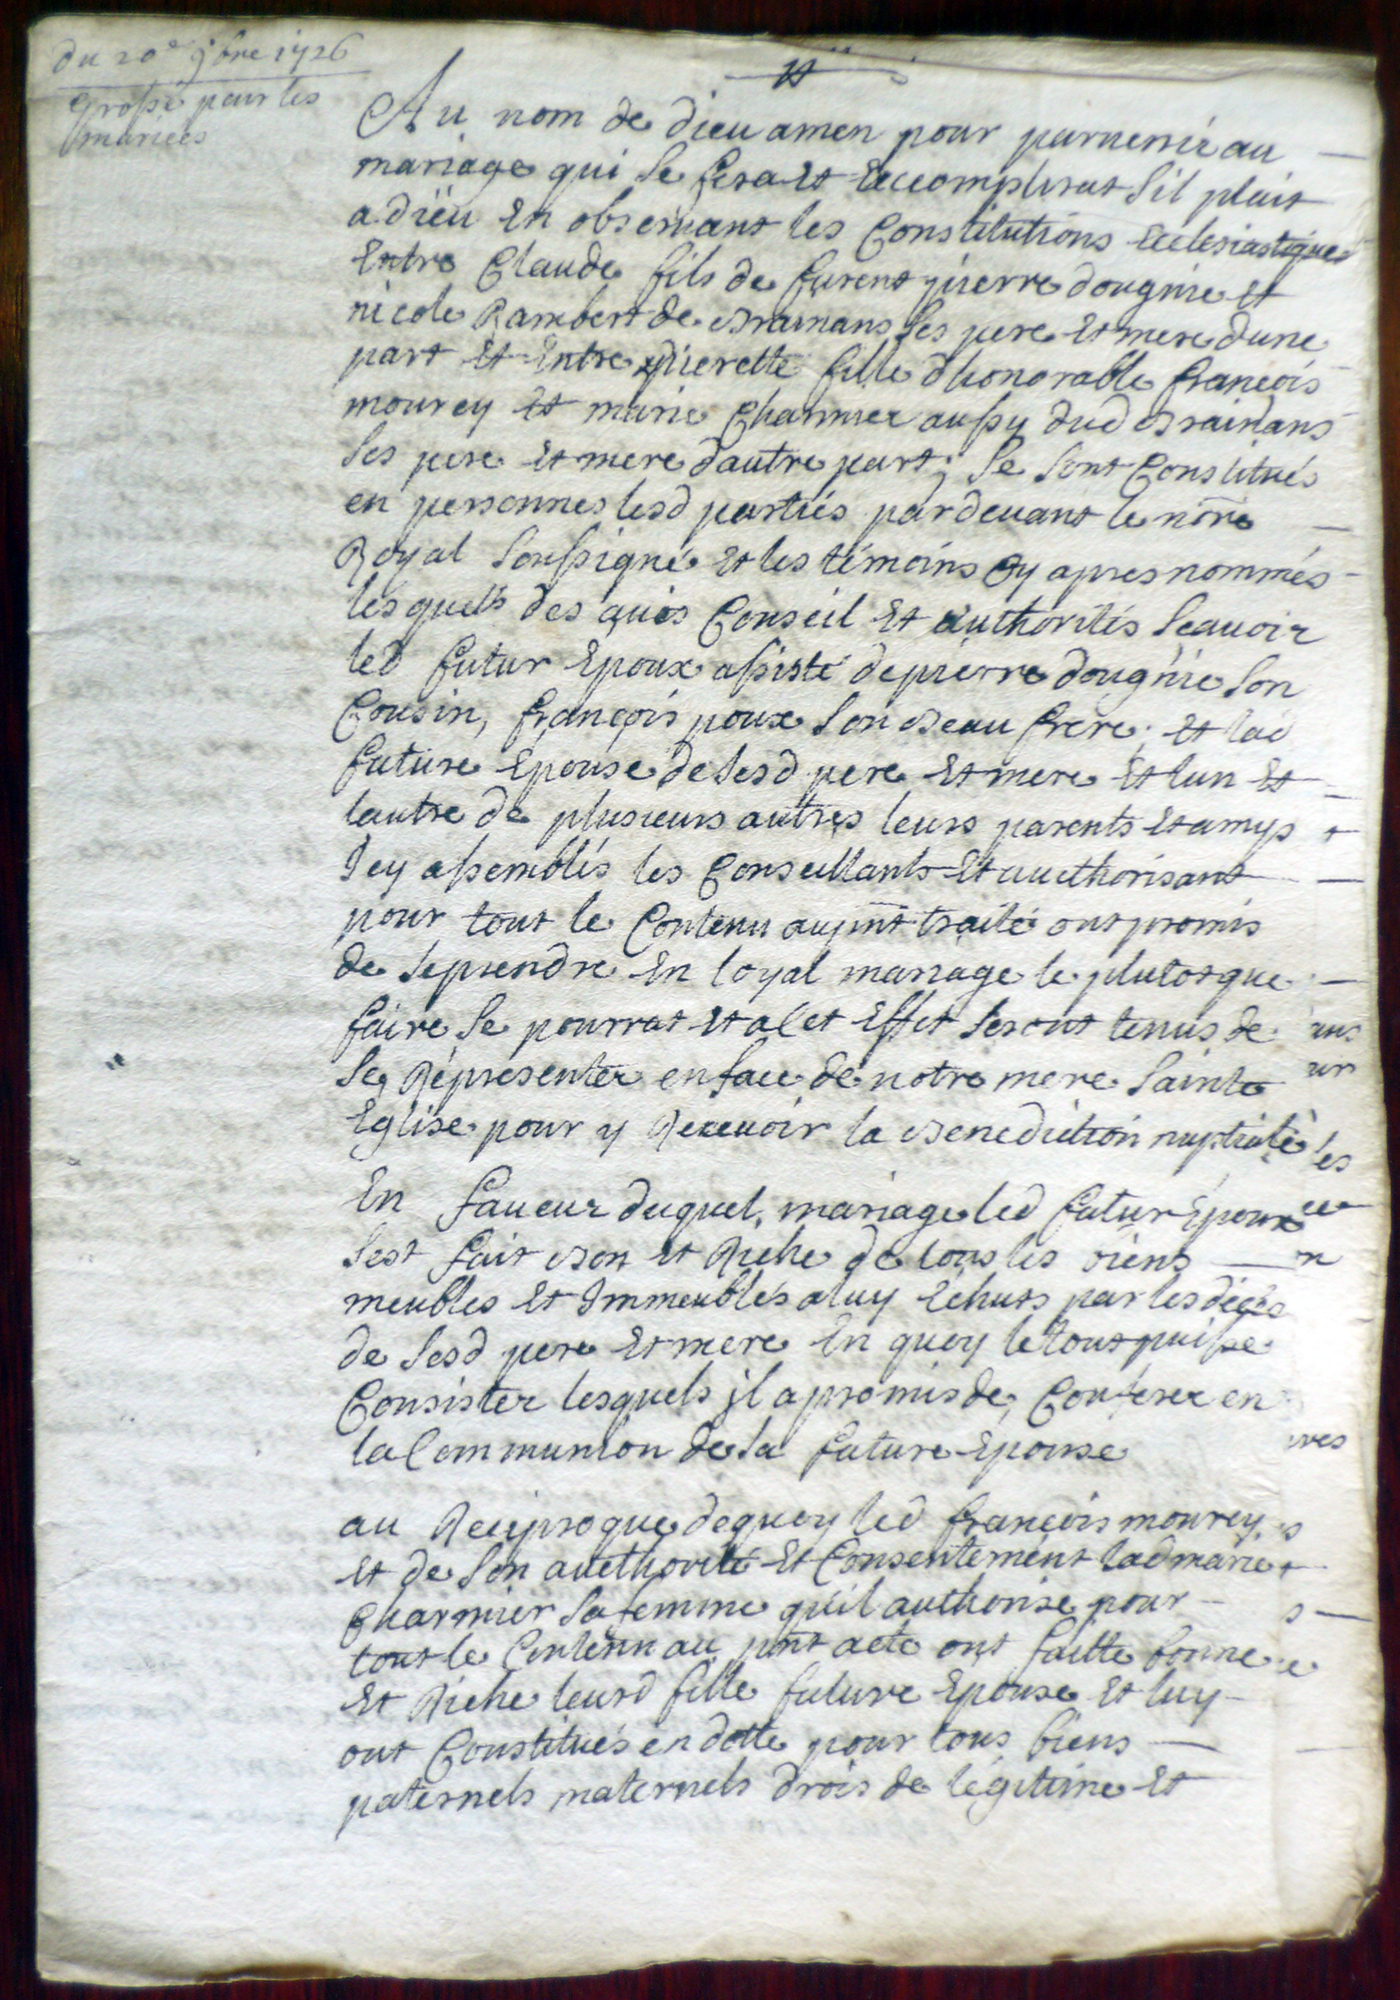 du 20e 9bre 1726
grosse pour les
mariees
Au nom de dieu amen pour parvenir au
mariage qui se fera et accomplirat s'il plait
a dieu en observant les Constitutions Ecclesiastiques
Entre Claude fils de furent pierre dougnie et
nicole Rambert de Brainans ses pere et mere dune
part et Entre pierette fille dhonorable francois
mourey et marie Charmier aussy dud Brainans
ses pere et mere dautre part; se sont Constitués
en personnes lesd parties pardevant le nore
Royal soussigné et les témoins Cy apres nommés
lesquels des avis Conseil et authorités scavoir
led futur Epoux assisté de pierre dougnie son
Cousin, françois poux son Beau frere; et lad
future Epouse de sesd pere et mere et lun et
lautre de plusieurs autres leurs parents et amys
Icy assemblés les Conseillants et aucthorisant
pour tout le Contenu au pnt traité ont promis
de se prendre en loyal mariage le plutot que
faire se pourrat et a Cet Effet seront tenus de
se Représenter en face de notre mere sainte
Eglise pour y Recevoir la Benediction nuptiale
En faveur duquel mariage led futur Epoux
sest fait Bon et Riche de tous les biens
meubles et Immeubles a luy Echuts par les décés
de sesd pere et mere En quoy le tout puisse
Consister lesquels jl a promis de Conferer en
la Communion de sa future Epouse
au Reciproque de quoy led francois mourey
et de son aucthorité et Consentement lad marie
Charmier sa femme qu'il authorise pour
tout le Contenu au pnt acte ont faitte bonne
et Riche leurd fille future Epouse et luy
ont Constitués en dotte pour tous biens
paternels maternels drois de légitime et